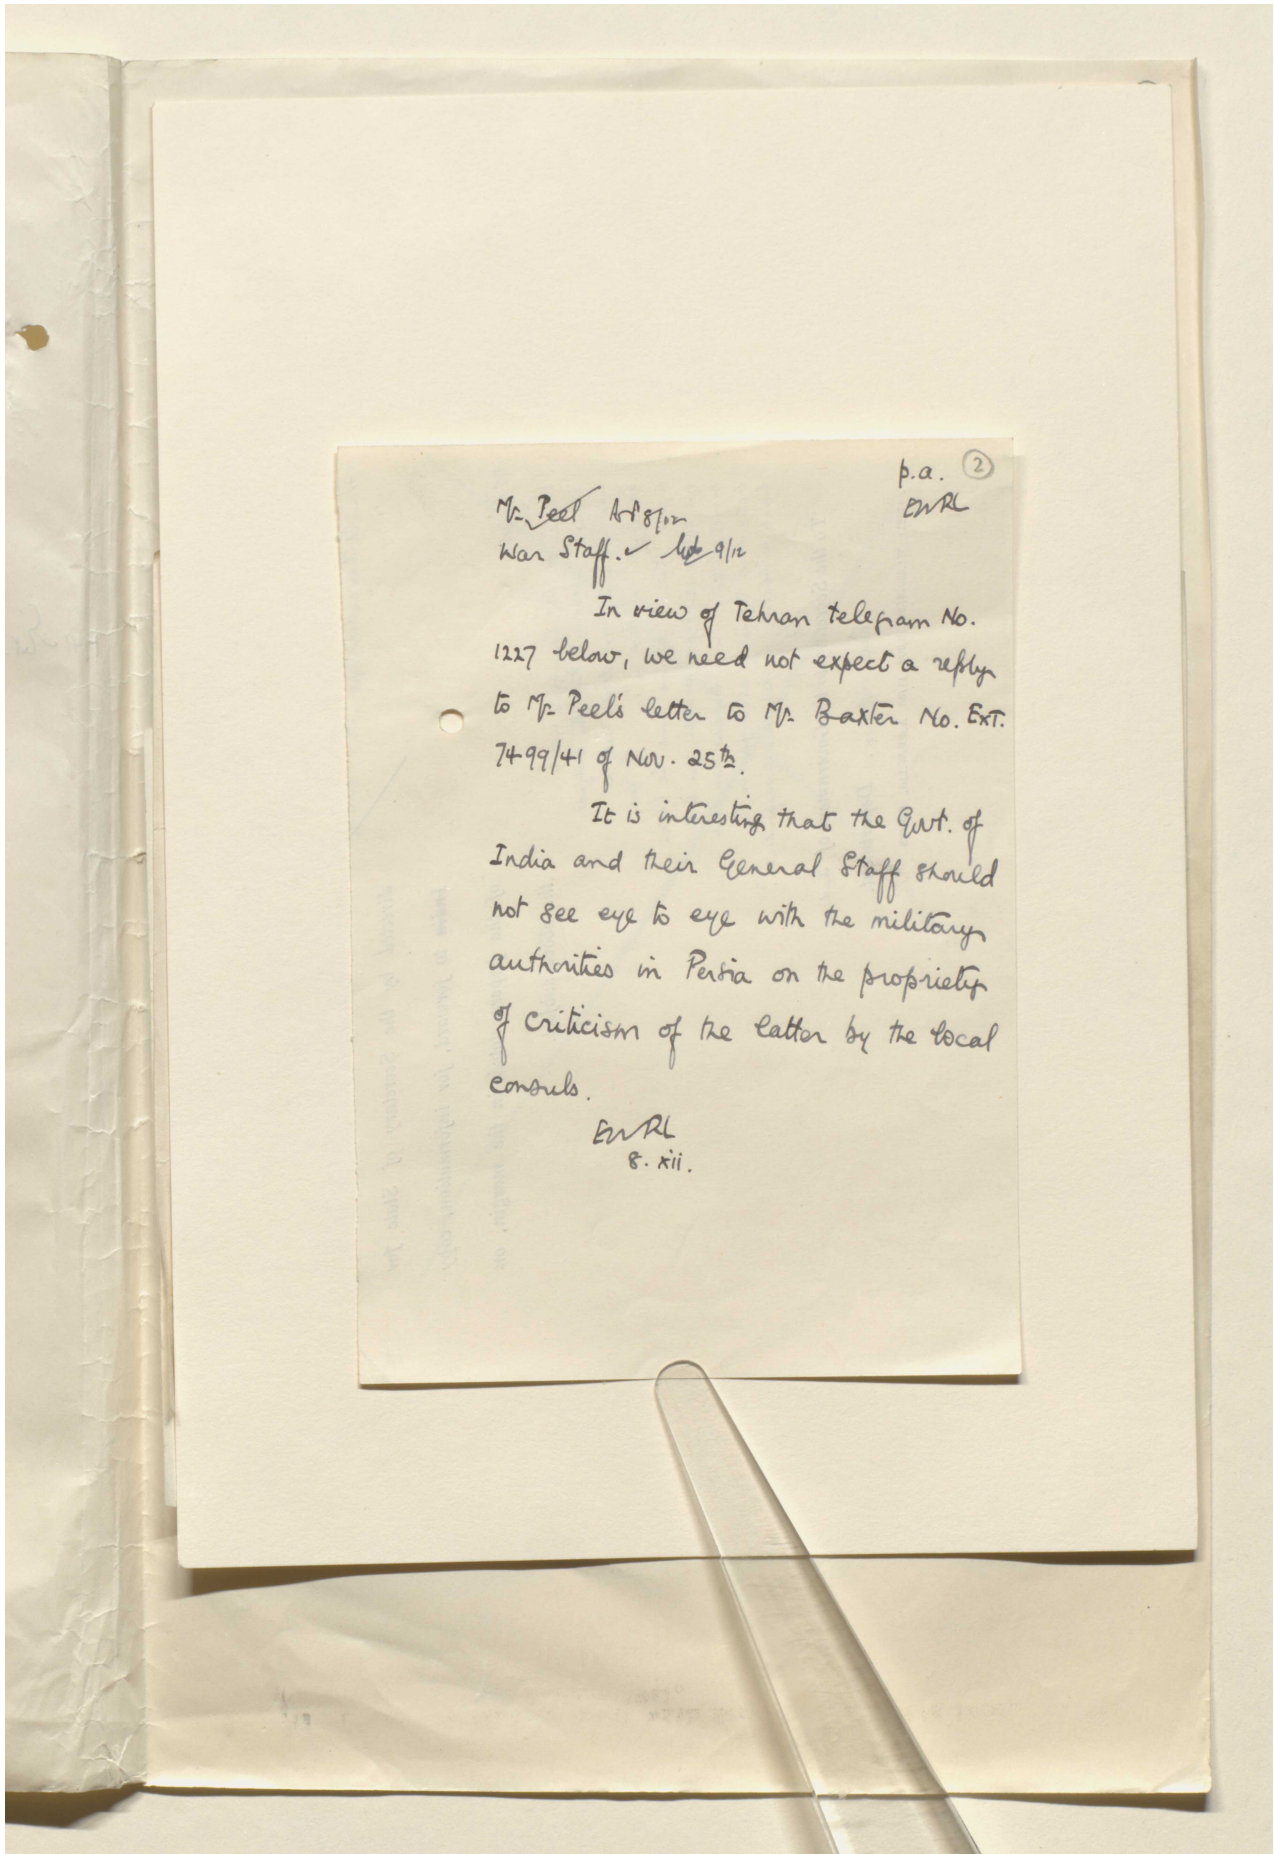 p.a. 2
EWRL
Mr. Peel 8/12
War Staff. 9/12
In view of Tehran telegram No.
1227 below, we need not expect a reply
to Mr. Peel's letter to Mr. Baxter No. Ext.
7499/41 of Nov. 25th.
It is interesting that the Govt. of
India and their General Staff should
not see eye to eye with the military
authorities in Persia on the propriety
of criticism of the latter by the local
consuls.
EWRL
8. xii.